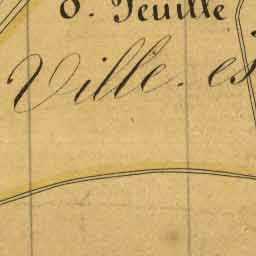 8. Feuille
Ville. et